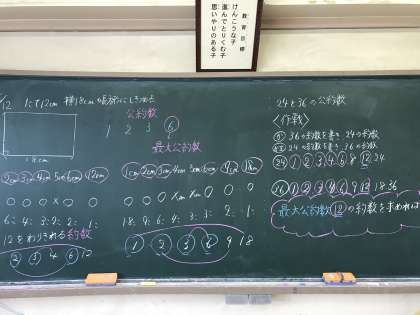 教育目標
けんこうな子
進んでとりくむ子
思いやりのある子
12 たて12cm 横18cmの長方形にしきつめる
18cm
公約数
1 2 3 6
最大公約数
2cm 3cm 4cm 5cm 6cm 12cm
1cm 2cm 3cm 4cm 5cm 6cm 9cm 18cm
6こ 4こ 3こ 2こ 1こ
18こ 9こ 6こ 3こ 2こ 1こ
12をわりきれる約数
2 3 4 6 12
1 2 3 6 9 18
24と36の公約数
〈作戦〉
36の約数を書き、24の約数
24の約数を書き、36の約数
24 1 2 3 4 6 8 12 24
36 1 2 3 4 6 9 12 18 36
最大公約数12の約数を求めれば